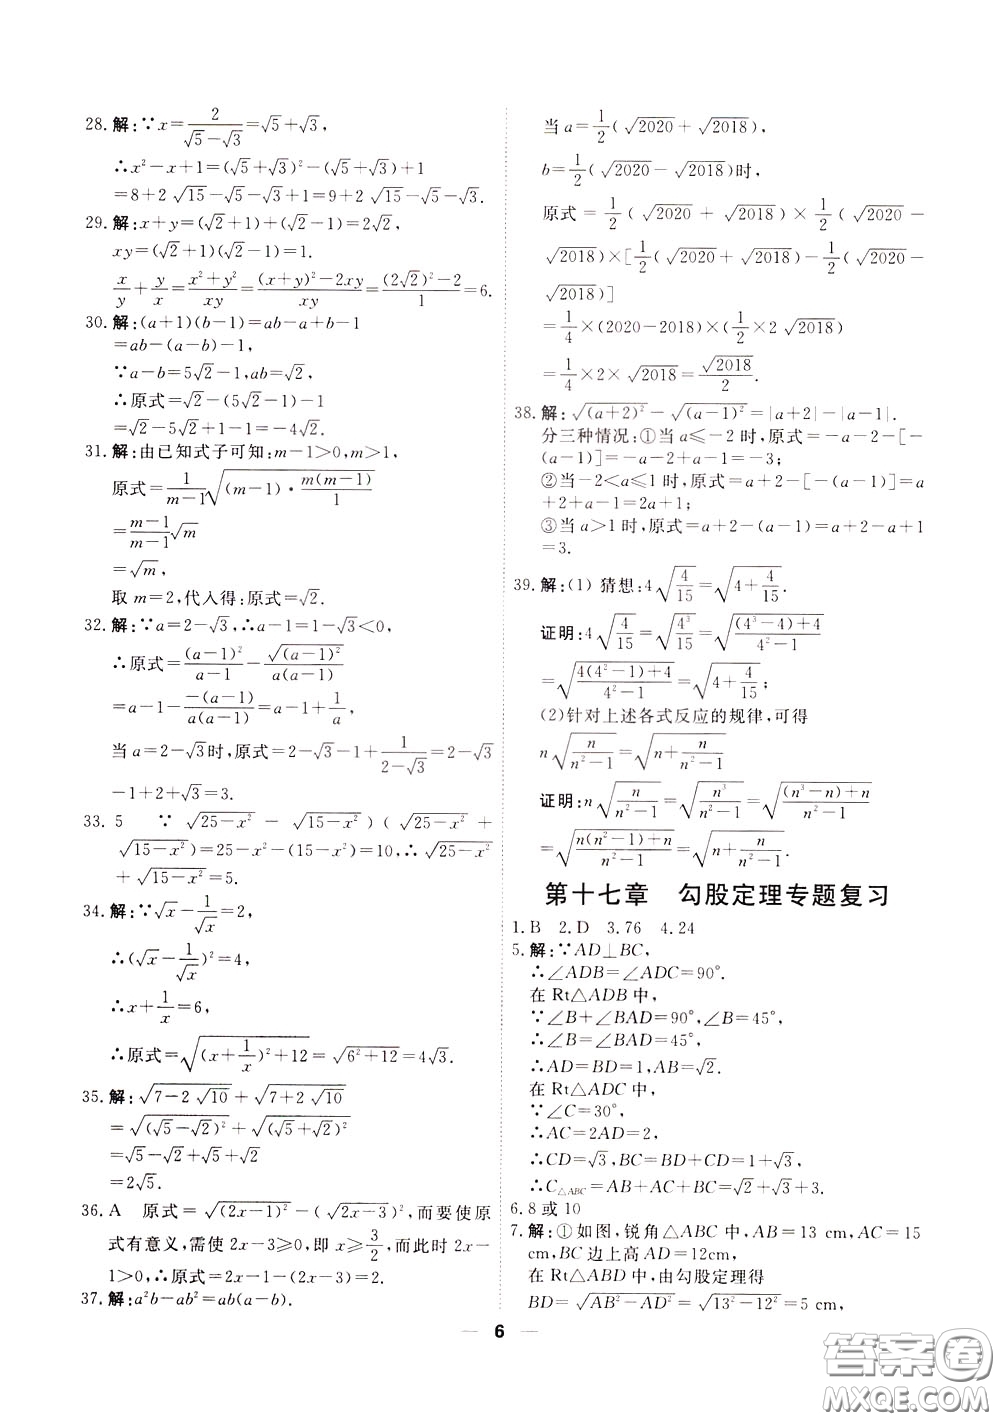 28. 解:∵x=2/(√5-√3)=√5+√3,
∴x²-x+1=(√5+√3)²-(√5+√3)+1
=8+2√15-√5-√3+1=9+2√15-√5-√3.
29. 解:x+y=(√2+1)+(√2-1)=2√2,
xy=(√2+1)(√2-1)=1.
x/y+y/x=(x²+y²)/xy=((x+y)²-2xy)/xy=((2√2)²-2)/1=6.
30. 解:(a+1)(b-1)=ab-a+b-1
=ab-(a-b)-1,
∵a-b=5√2-1,ab=√2,
∴原式=√2-(5√2-1)-1
=√2-5√2+1-1=-4√2.
31. 解:由已知式子可知:m-1>0,m>1,
原式=1/(m-1)√((m-1)·m(m-1)/1)
=(m-1)/(m-1)√m
=√m,
取m=2,代入得:原式=√2.
32. 解:∵a=2-√3,∴a-1=1-√3<0,
∴原式=(a-1)²/(a-1)-√((a-1)²)/(a(a-1))
=a-1-(-(a-1))/(a(a-1))=a-1+1/a,
当a=2-√3时,原式=2-√3-1+1/(2-√3)=2-√3
-1+2+√3=3.
33. 5 ∵ √(25-x²) - √(15-x²))(√(25-x²) +
√(15-x²))=25-x²-(15-x²)=10,∴√(25-x²)
+√(15-x²)=5.
34. 解:∵√x-1/√x=2,
∴(√x-1/√x)²=4,
∴x+1/x=6,
∴原式=√((x+1/x)²+12)=√(6²+12)=4√3.
35. 解:√(7-2√10)+√(7+2√10)
=√((√5-√2)²)+√((√5+√2)²)
=√5-√2+√5+√2
=2√5.
36. A 原式=√((2x-1)²)-(√(2x-3))²,而要使原
式有意义,需使2x-3⩾0,即x⩾3/2,而此时2x-
1>0,∴原式=2x-1-(2x-3)=2.
37. 解:a²b-ab²=ab(a-b).
当a=1/2(√2020+√2018),
b=1/2(√2020-√2018)时,
原式=1/2(√2020+√2018)×1/2(√2020-
√2018)×[1/2(√2020+√2018)-1/2(√2020-
√2018)]
=1/4×(2020-2018)×(1/2×2√2018)
=1/4×2×√2018=√2018/2.
38. 解:√((a+2)²)-√((a-1)²)=|a+2|-|a-1|.
分三种情况:①当a⩽-2时,原式=-a-2-[-
(a-1)]=-a-2+a-1=-3;
②当-2<a⩽1时,原式=a+2-[-(a-1)]=a
+2+a-1=2a+1;
③当a>1时,原式=a+2-(a-1)=a+2-a+1
=3.
39. 解:(1) 猜想:4√(4/15)=√(4+4/15).
证明:4√(4/15)=√(4³/15)=√(((4³-4)+4)/(4²-1))
=√((4(4²-1)+4)/(4²-1))=√(4+4/15);
(2)针对上述各式反应的规律,可得
n√(n/(n²-1))=√(n+n/(n²-1))
证明:n√(n/(n²-1))=√(n³/(n²-1))=√(((n³-n)+n)/(n²-1))
=√((n(n²-1)+n)/(n²-1))=√(n+n/(n²-1)).
第十七章 勾股定理专题复习
1.B 2.D 3.76 4.24
5. 解:∵AD⊥BC,
∴∠ADB=∠ADC=90°.
在Rt△ADB中,
∵∠B+∠BAD=90°,∠B=45°,
∴∠B=∠BAD=45°,
∴AD=BD=1,AB=√2.
在Rt△ADC中,
∵∠C=30°,
∴AC=2AD=2,
∴CD=√3,BC=BD+CD=1+√3,
∴C△ABC=AB+AC+BC=√2+√3+3.
6. 8或10
7. 解:①如图,锐角△ABC中,AB=13 cm,AC=15
cm,BC边上高AD=12cm,
在Rt△ABD中,由勾股定理得
BD=√(AB²-AD²)=√(13²-12²)=5 cm,
6
答案圈
MXQE.COM